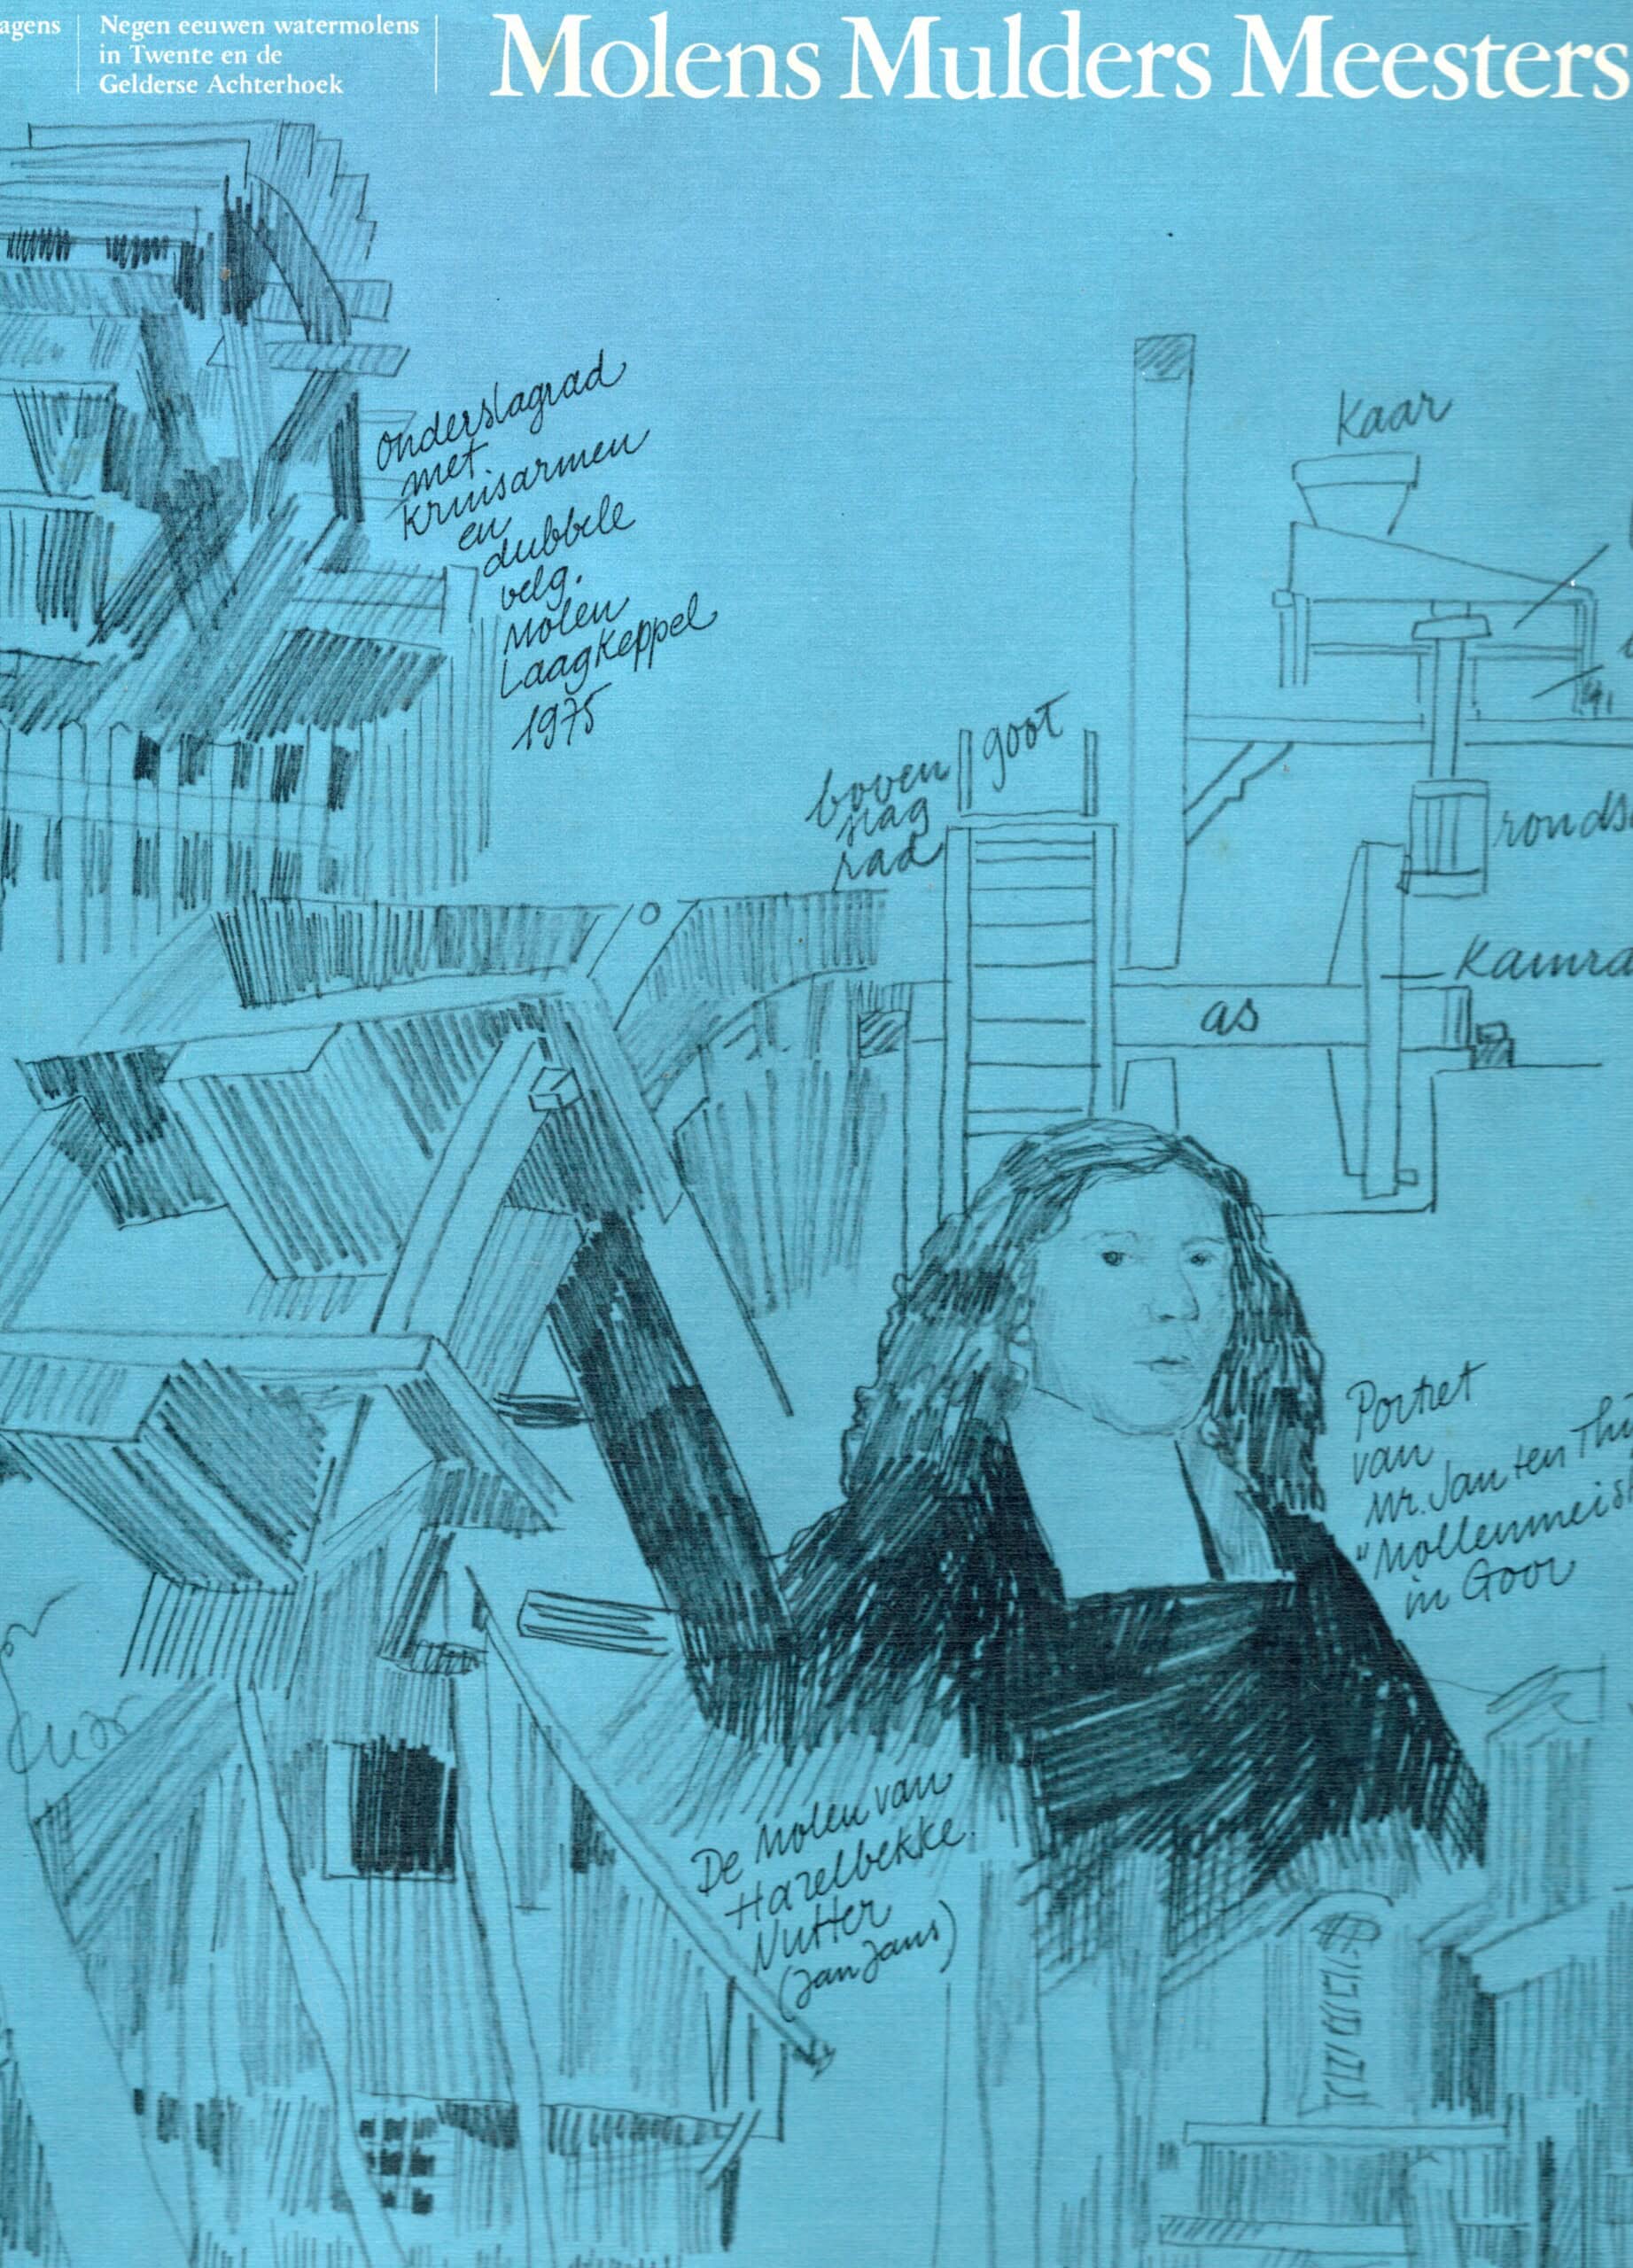 agens
Negen eeuwen watermolens
in Twente en de
Gelderse Achterhoek
Molens Mulders Meesters
onderslagrad
met
kruisarmen
en
dubbele
velg.
Molen
Laagkeppel
1975
Kaar
goot
boven
slag
rad
ronds
Kamra
as
Portret
van
Mr. Jan ten Thi
"Mollenmeist
in Goor
De Molen van
Hazelbekke.
Nutter
(Jan Jans)